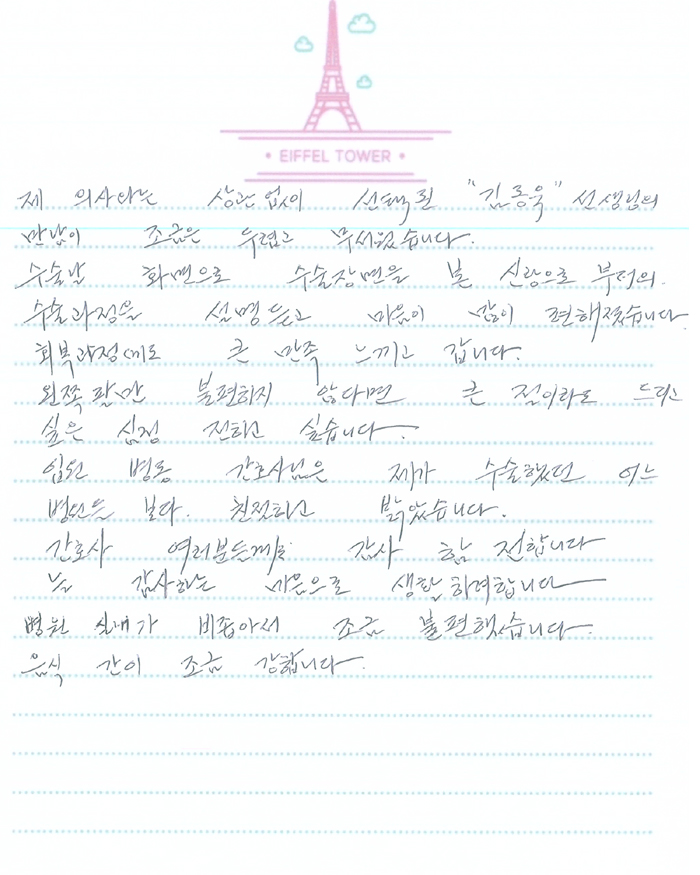 EIFFEL TOWER
제 의사와는 상관없이 선택된 "김동욱" 선생님의
만남이 조금은 두렵고 무서웠습니다.
수술날 화면으로 수술장면을 본 신랑으로부터의
수술과정을 설명듣고 마음이 많이 편해졌습니다
회복과정에도 큰 만족 느끼고 갑니다.
왼쪽팔만 불편하지 않다면 큰 절이라도 드리고
싶은 심정 전하고 싶습니다
입원 병동 간호사님은 제가 수술했던 어느
병원들 보다. 친절하고 밝았습니다.
간호사 여러분들께도 감사 함 전합니다
늘 감사하는 마음으로 생활하려합니다
병원 실내가 비좁아서 조금 불편했습니다.
음식 간이 조금 강합니다.